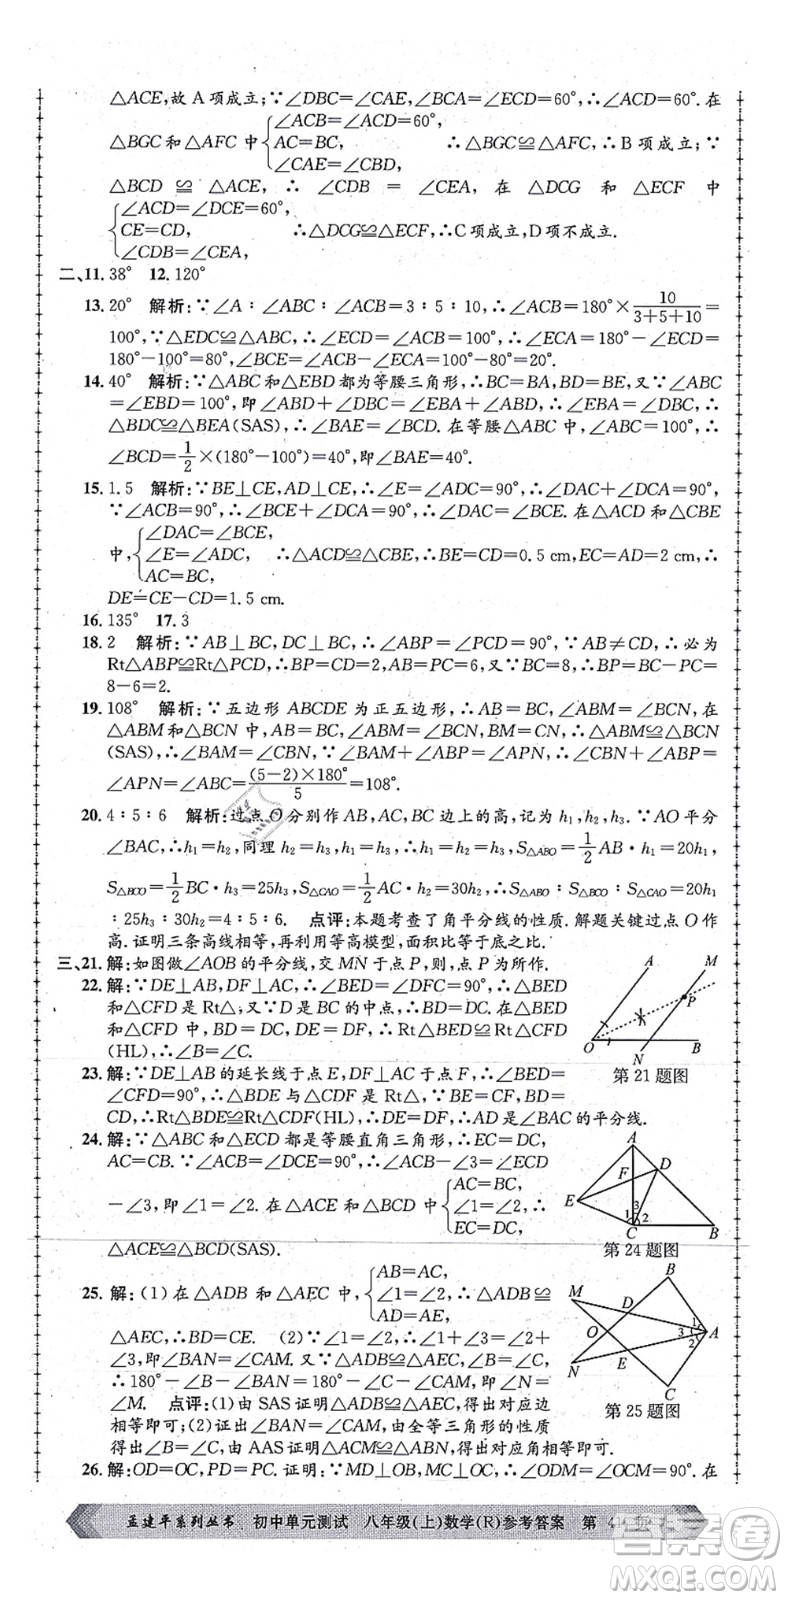 △ACE,故A项成立;∵∠DBC=∠CAE,∠BCA=∠ECD=60°,∴∠ACD=60°.在
△BGC和△AFC中{∠ACB=∠ACD=60°, AC=BC, ∠CAE=∠CBD, ∴△BGC≌△AFC,∴B项成立;∵
△BCD≌△ACE,∴∠CDB=∠CEA,在△DCG和△ECF中
{∠ACD=∠DCE=60°, CE=CD, ∠CDB=∠CEA, ∴△DCG≌△ECF,∴C项成立,D项不成立.
二、11.38° 12.120°
13.20° 解析:∵∠A∶∠ABC∶∠BCA=3∶5∶10,∴∠BCA=180°×10/(3+5+10)=
100°,∵△EDC≌△ABC,∴∠ECD=∠ACB=100°,∴∠BCD=180°-∠ECD=
180°-100°=80°,∠BCE=∠ACB-∠BCD=100°-80°=20°.
14.40° 解析:∵△ABC和△EBD都为等腰三角形,∴BC=BA,BD=BE,又∵∠ABC
=∠EBD=100°,即∠ABD+∠DBC=∠ABE+∠ABD,∴∠EBA=∠DBC,∴
△BDC≌△BEA(SAS),∴∠BAE=∠BCD.在等腰△ABC中,∠ABC=100°,∴
∠BCD=1/2×(180°-100°)=40°,即∠BAE=40°.
15.1.5 解析:∵BE⊥CE,AD⊥CE,∴∠E=∠ADC=90°,∴∠DAC+∠DCA=90°,
∵∠ACB=90°,∴∠BCE+∠DCA=90°,∴∠DAC=∠BCE.在△ACD和△CBE
中,{∠DAC=∠BCE, ∠E=∠ADC, AC=BC, ∴△ACD≌△CBE,∴BE=CD=0.5 cm,EC=AD=2 cm,∴
DE=CE-CD=1.5 cm.
16.135° 17.3
18.2 解析:∵AB⊥BC,DC⊥BC,∴∠ABP=∠PCD=90°,∵AB≠CD,∴必为
Rt△ABP≌Rt△PCD,∴BP=CD=2,CP=AB=6,又∵BC=8,∴BP=BC-CP=
8-6=2.
19.108° 解析:∵五边形ABCDE为正五边形,∴AB=BC,∠ABM=∠BCN,在
△ABM和△BCN中,AB=BC,∠ABM=∠BCN,BM=CN,∴△ABM≌△BCN
(SAS),∴∠BAM=∠CBN,∵∠BAM+∠ABP=∠APN,∴∠CBN+∠ABP
=∠APN=∠ABC=(5-2)×180°/5=108°.
20.4∶5∶6 解析:过点O分别作AB,AC,BC边上的高,记为h₁,h₂,h₃.∵AO平分
∠BAC,∴h₁=h₂,同理h₂=h₃,∴h₁=h₂=h₃,∵S△ABO=1/2AB·h₁=20h₁,
S△BCO=1/2BC·h₃=25h₃,S△CAO=1/2AC·h₂=30h₂,∴S△ABO∶S△BCO∶S△CAO=20h₁
∶25h₃∶30h₂=4∶5∶6. 点评:本题考查了角平分线的性质.解题关键过点O作
高.证明三条高线相等,再利用等高模型,面积比等于底之比.
三、21.解:如图做∠AOB的平分线,交MN于点P,则,点P为所作.
22.解:∵DE⊥AB,DF⊥AC,∴∠BED=∠DFC=90°,∴△BED
和△CFD是Rt△,又∵D是BC的中点,∴BD=DC,在△BED
和△CFD中,BD=DC,DE=DF,∴Rt△BED≌Rt△CFD
(HL),∴∠B=∠C.
A M P O B N
第21题图
23.解:∵DE⊥AB的延长线于点E,DF⊥AC于点F,∴∠BED=
∠CFD=90°,∴△BDE与△CDF是直角三角形,∵BE=CF,BD
=CD,∴Rt△BDE≌Rt△CDF(HL),∴DE=DF,∴AD是∠BAC的平分线.
24.解:∵△ABC和△ECD都是等腰直角三角形,∴EC=DC,
AC=CB.∵∠ACB=∠DCE=90°,∴∠ACB-∠3=∠ECD
-∠3,即∠1=∠2.在△ACE和△BCD中{AC=BC, ∠1=∠2, EC=DC, ∴
△ACE≌△BCD(SAS).
A F D E 1 3 2 C B
第24题图
25.解:(1)在△ADB和△AEC中,{AB=AC, ∠1=∠2, AD=AE, ∴△ADB≌
△AEC,∴BD=CE. (2)∵∠1=∠2,∴∠1+∠3=∠2
+∠3,即∠BAN=∠CAM,∵△ABD≌△ACE,∴∠B=∠C,
∴180°-∠B-∠BAN=180°-∠C-∠CAM,即∠N=
∠M. 点评:(1)由SAS证明△ADB≌△AEC,得出对应边
相等即可;(2)证出∠BAN=∠CAM,由全等三角形的性质
得出∠B=∠C,由AAS证明△ACM≌△ABN,得出对应角相等即可.
B M D 1 O 3 A 2 E N C
第25题图
26.解:OD=OC,PD=PC.证明:∵MD⊥OB,∴∠ECM=∠EDM=90°,在
孟建平系列丛书 初中单元测试 八年级(上)数学(R)参考答案 第
答案圈
MXQE.COM